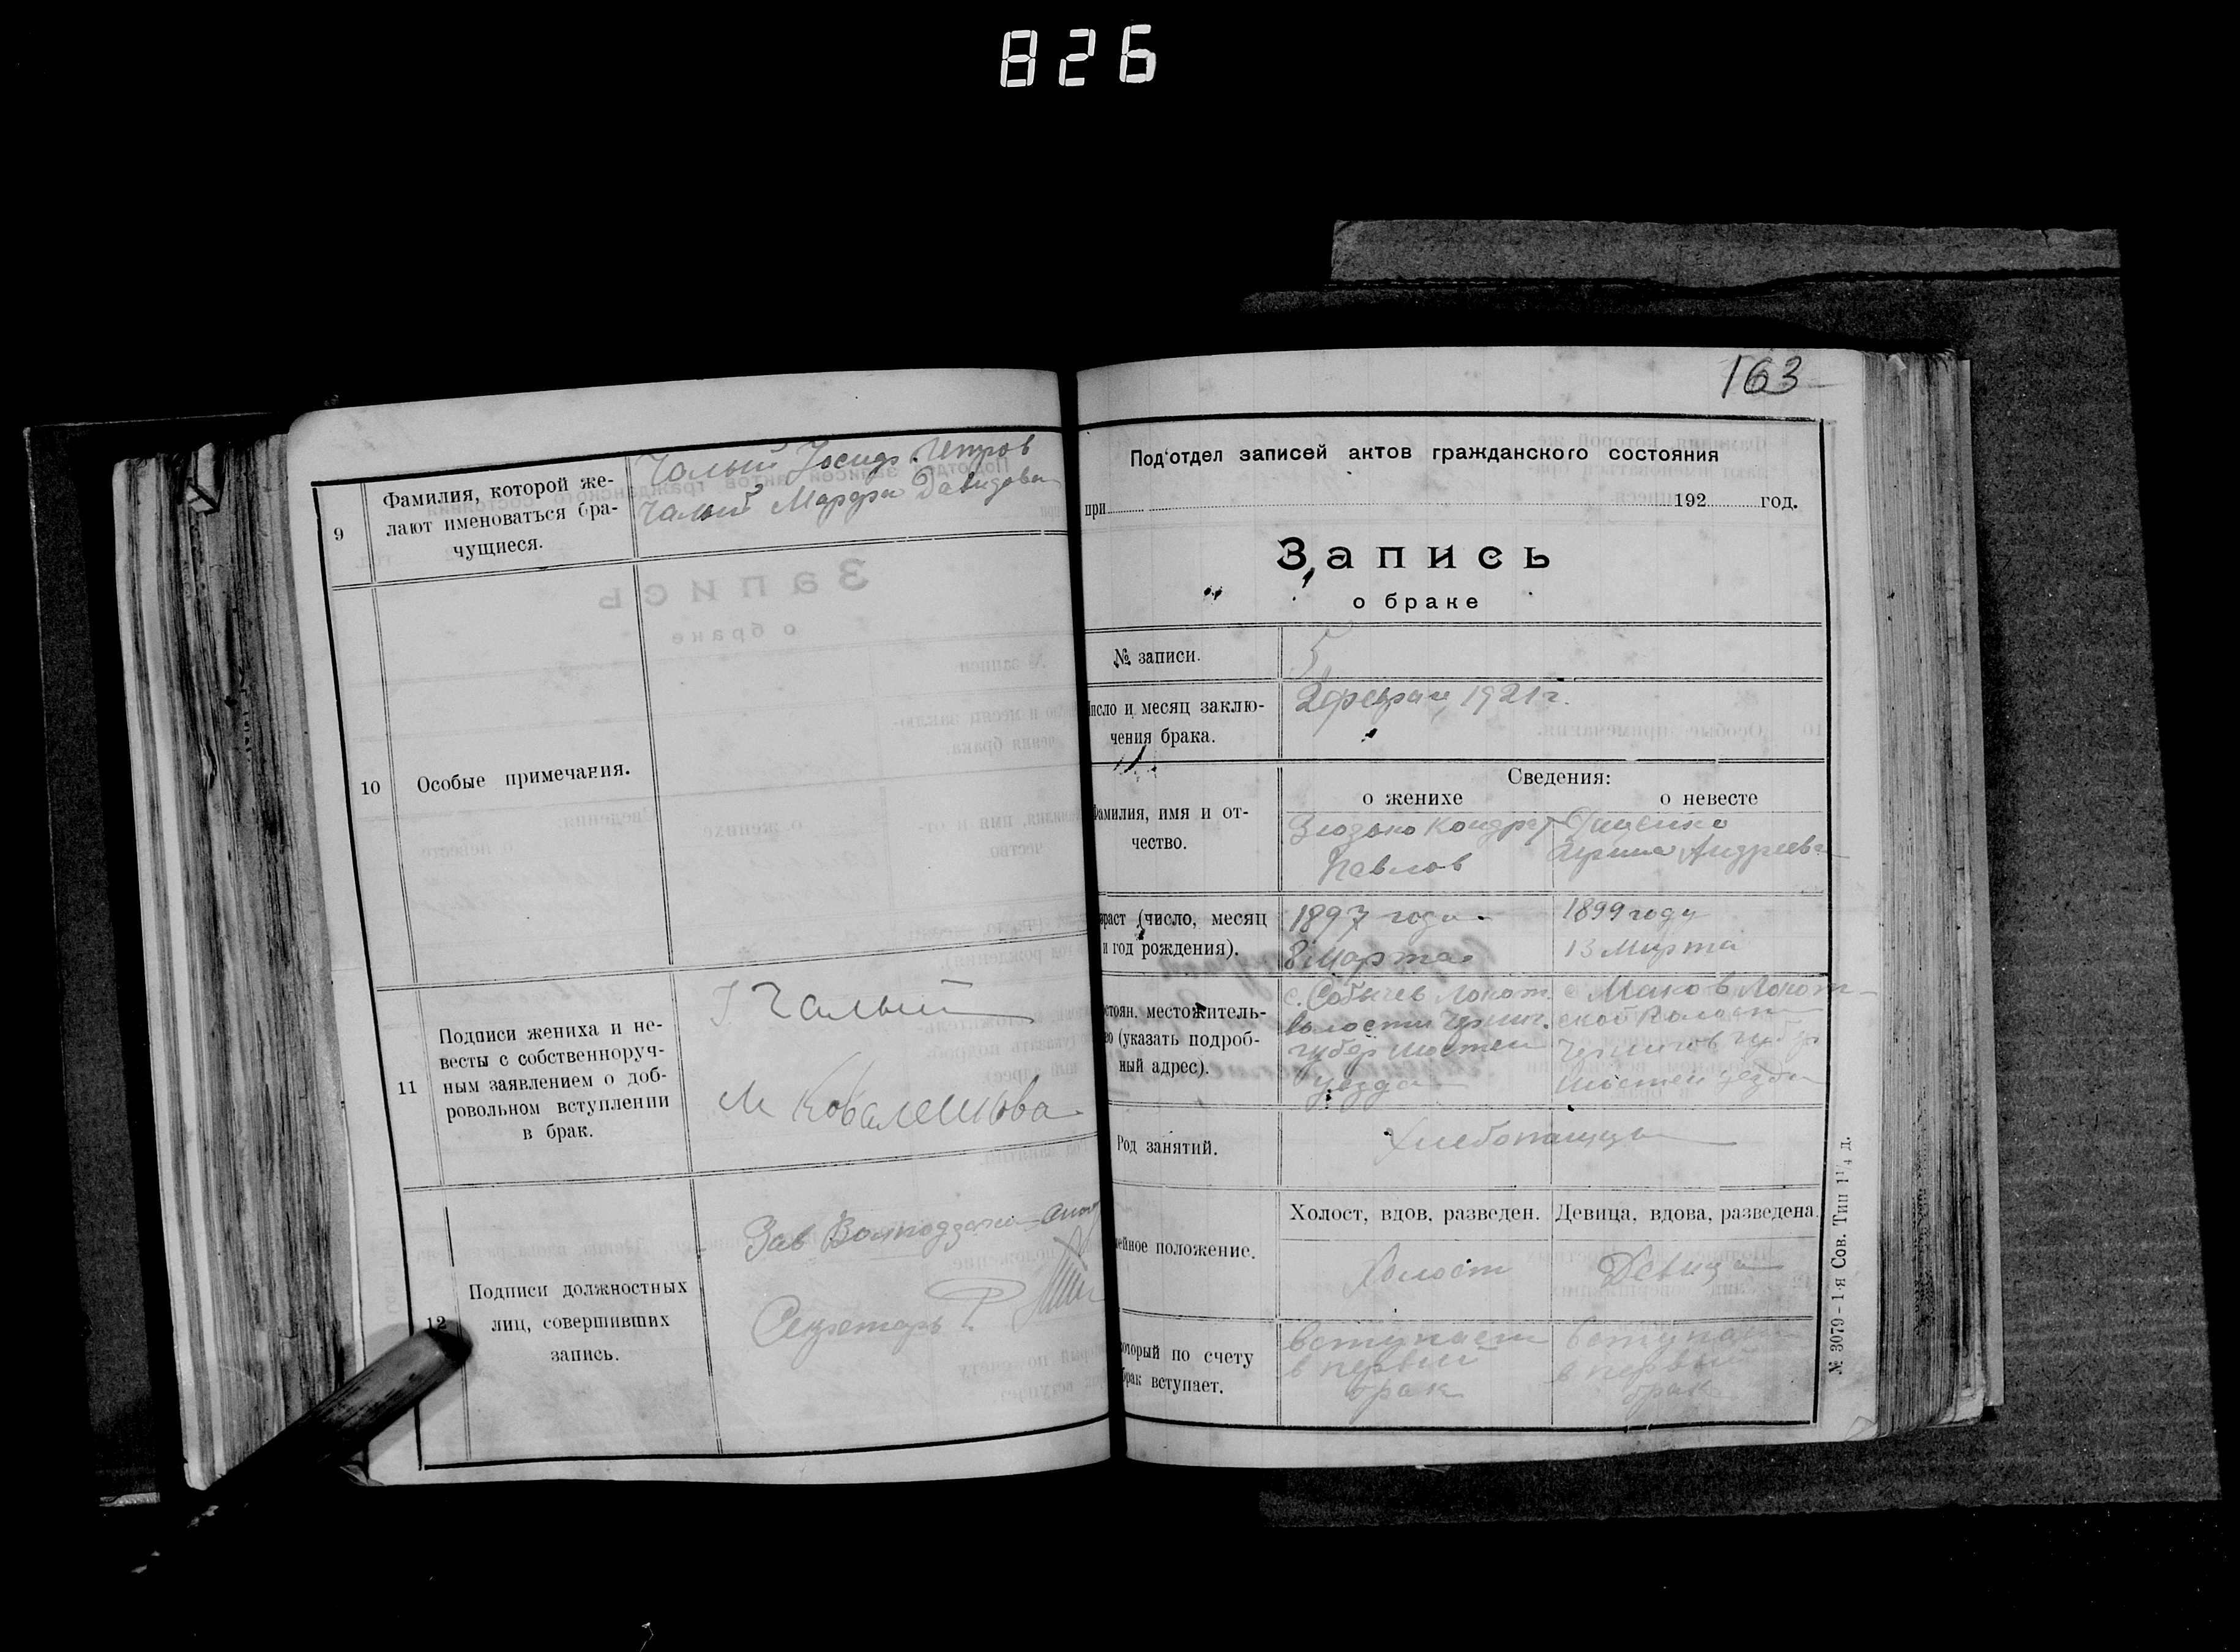 826
9
Фамилия, которой же-
лают именоваться бра-
чущиеся.
Чалый Иосиф Петров
Чалый Марфа Давидова
10
Особые примечания.
11
Подписи жениха и не-
весты с собственноруч-
ным заявлением о доб-
ровольном вступлении
в брак.
Чалый
М Ковалешова
12
Подписи должностных
лиц, совершивших
запись.
Зав
Секретарь
163
Под'отдел записей актов гражданского состояния
при 192 год.
Запись
о браке
№ записи.
5
число и месяц заклю-
чения брака.
2 феврал 1921 г.
Сведения:
о женихе
о невесте
Фамилия, имя и от-
чество.
Кондрат
Павлов
Андреева
раст (число, месяц
и год рождения).
1897 года
8 Марта
1899 году
13 Марта
стоян. местожитель-
во (указать подроб-
ный адрес).
с. Собычев Локот.
волости Черниг.
губер Шостен
уезда
с Маков Локот-
ской Волости
Чернигов губер
Шостен уезда
Род занятий.
Хлебопашцы
ейное положение.
Холост, вдов, разведен.
Девица, вдова, разведена.
Холост
Девица
который по счету
брак вступает.
вступает
в первый
брак
вступает
в первый
брак
№ 3079-1-я Сов. Тип 1¹/₄ д.